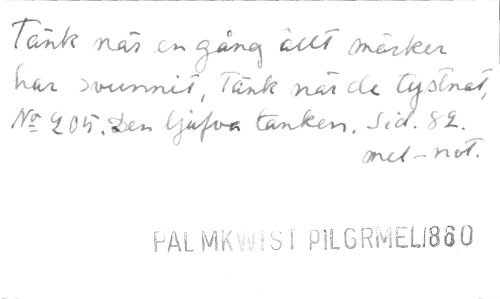 Tänk när en gång allt mörker
har svunnit, Tänk när de tystnat,
No 205. Den ljufva tanken. Sid. 82.
mel-not.
PALMKWIST PILGRMEL1880